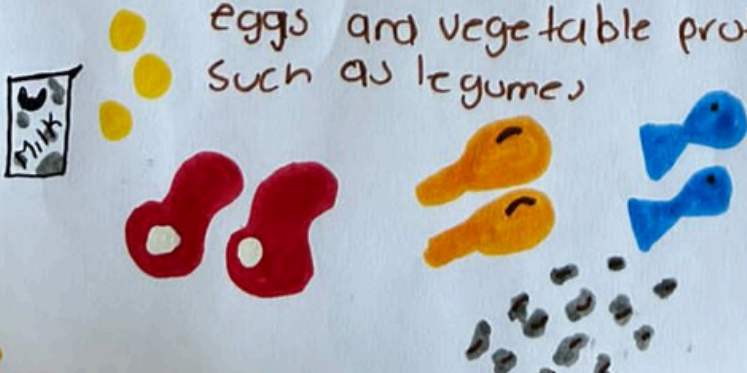 eggs and vegetable pro
such as legumes
MilK